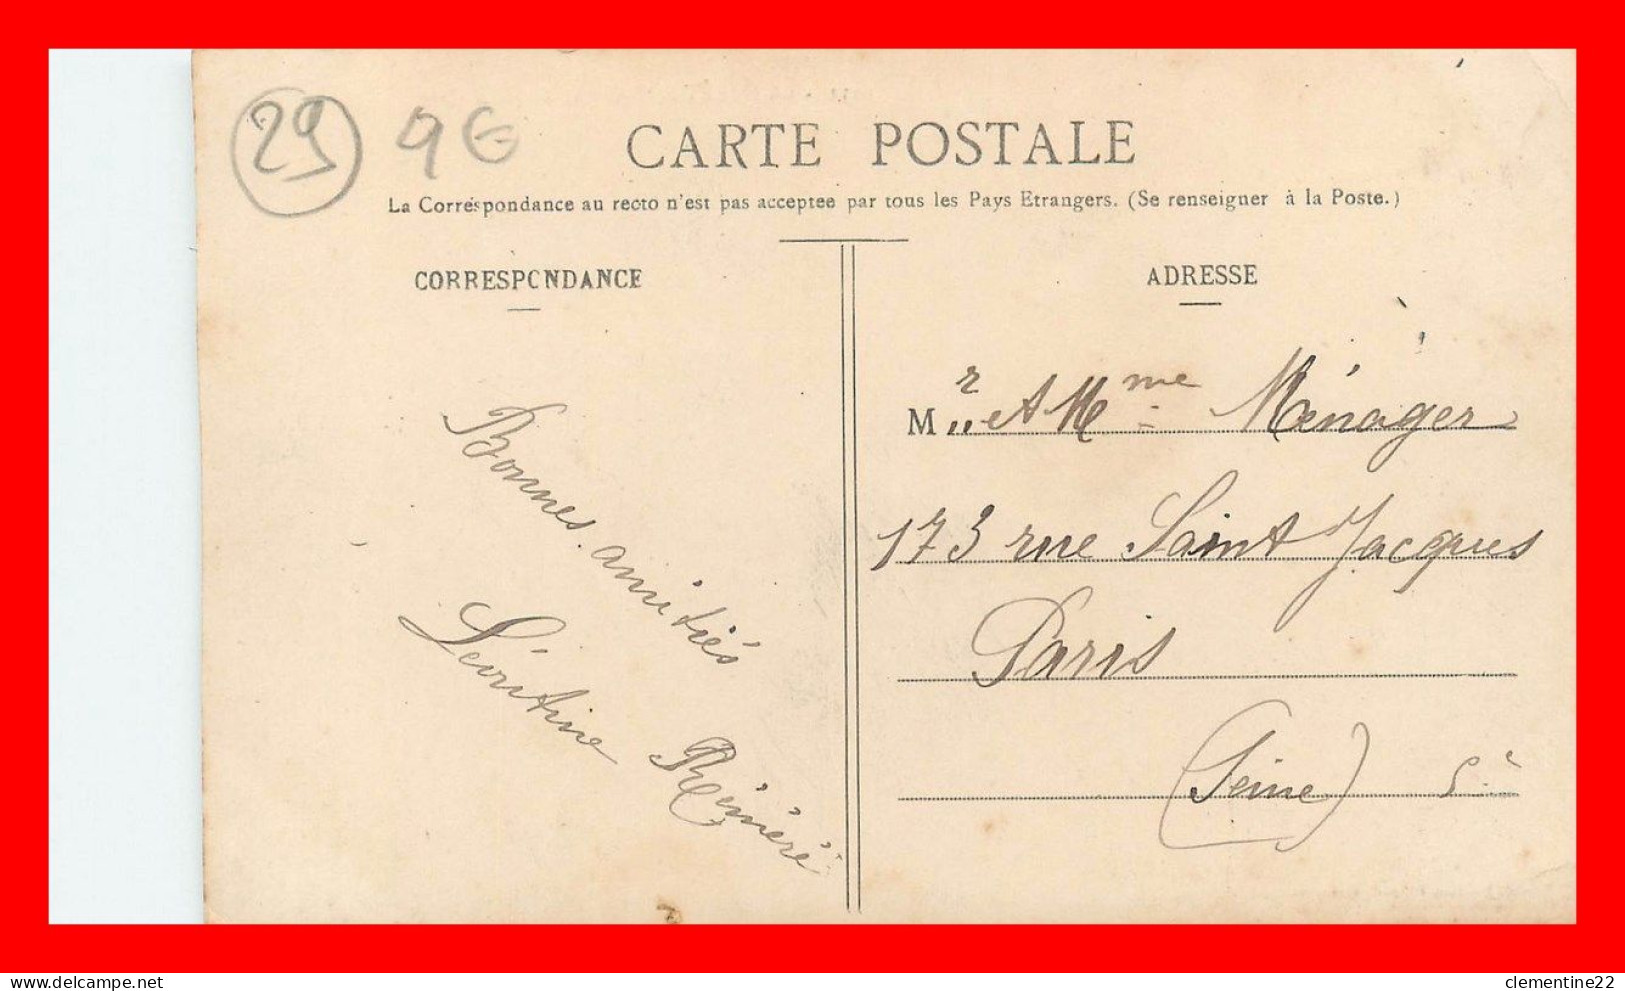 29 9€
CARTE POSTALE
La Correspondance au recto n'est pas acceptee par tous les Pays Etrangers. (Se renseigner à la Poste.)
CORRESPONDANCE
Bonnes amitiés
Léontine
ADRESSE
Mr et Mme Ménager
173 rue Saint Jacques
Paris
(Seine)
www.delcampe.net
clementine22